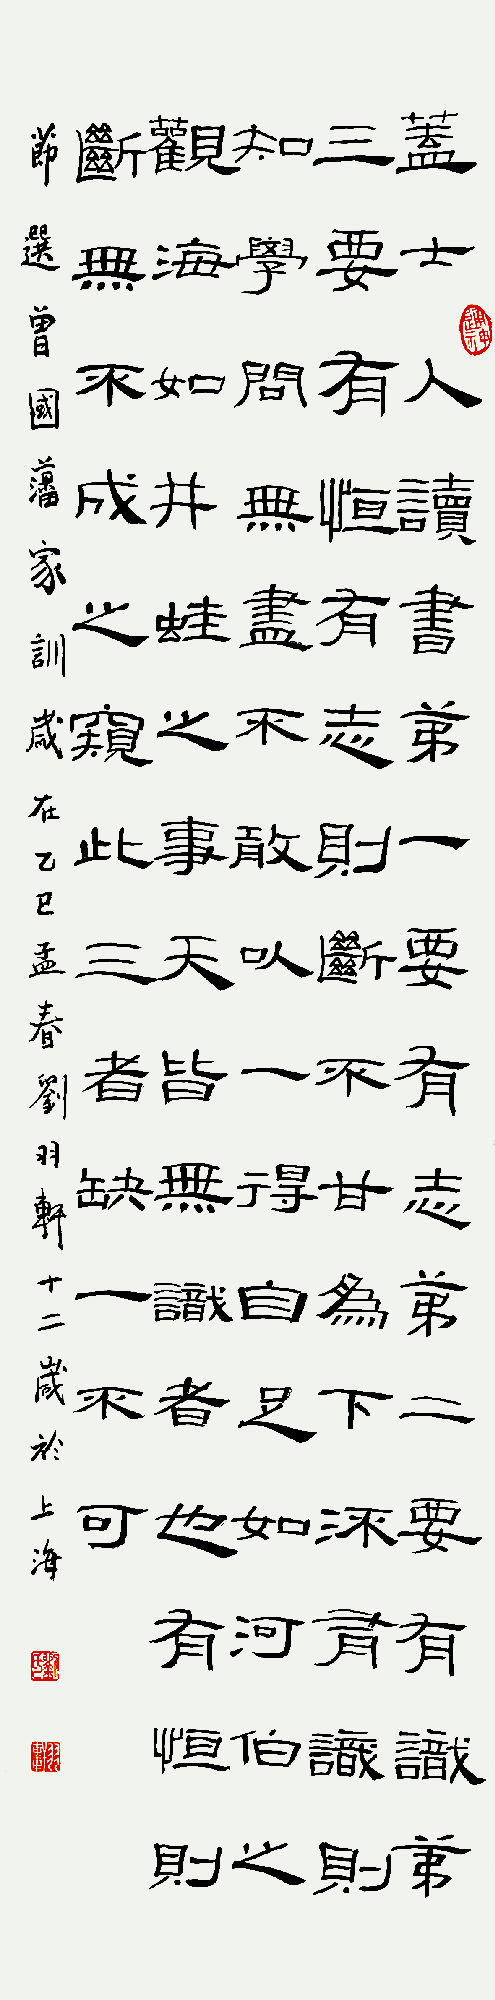 蓋士人讀書弟一要有志弟二要有識弟
三要有恒有志則斷不甘為下流有識則
知學問無盡不敢以一得自足如河伯之
觀海如井蛙之事天皆無識者也有恒則
斷無不成之窺此三者缺一不可
節選曾國藩家訓歲在乙巳孟春劉羽軒十二歲於上海